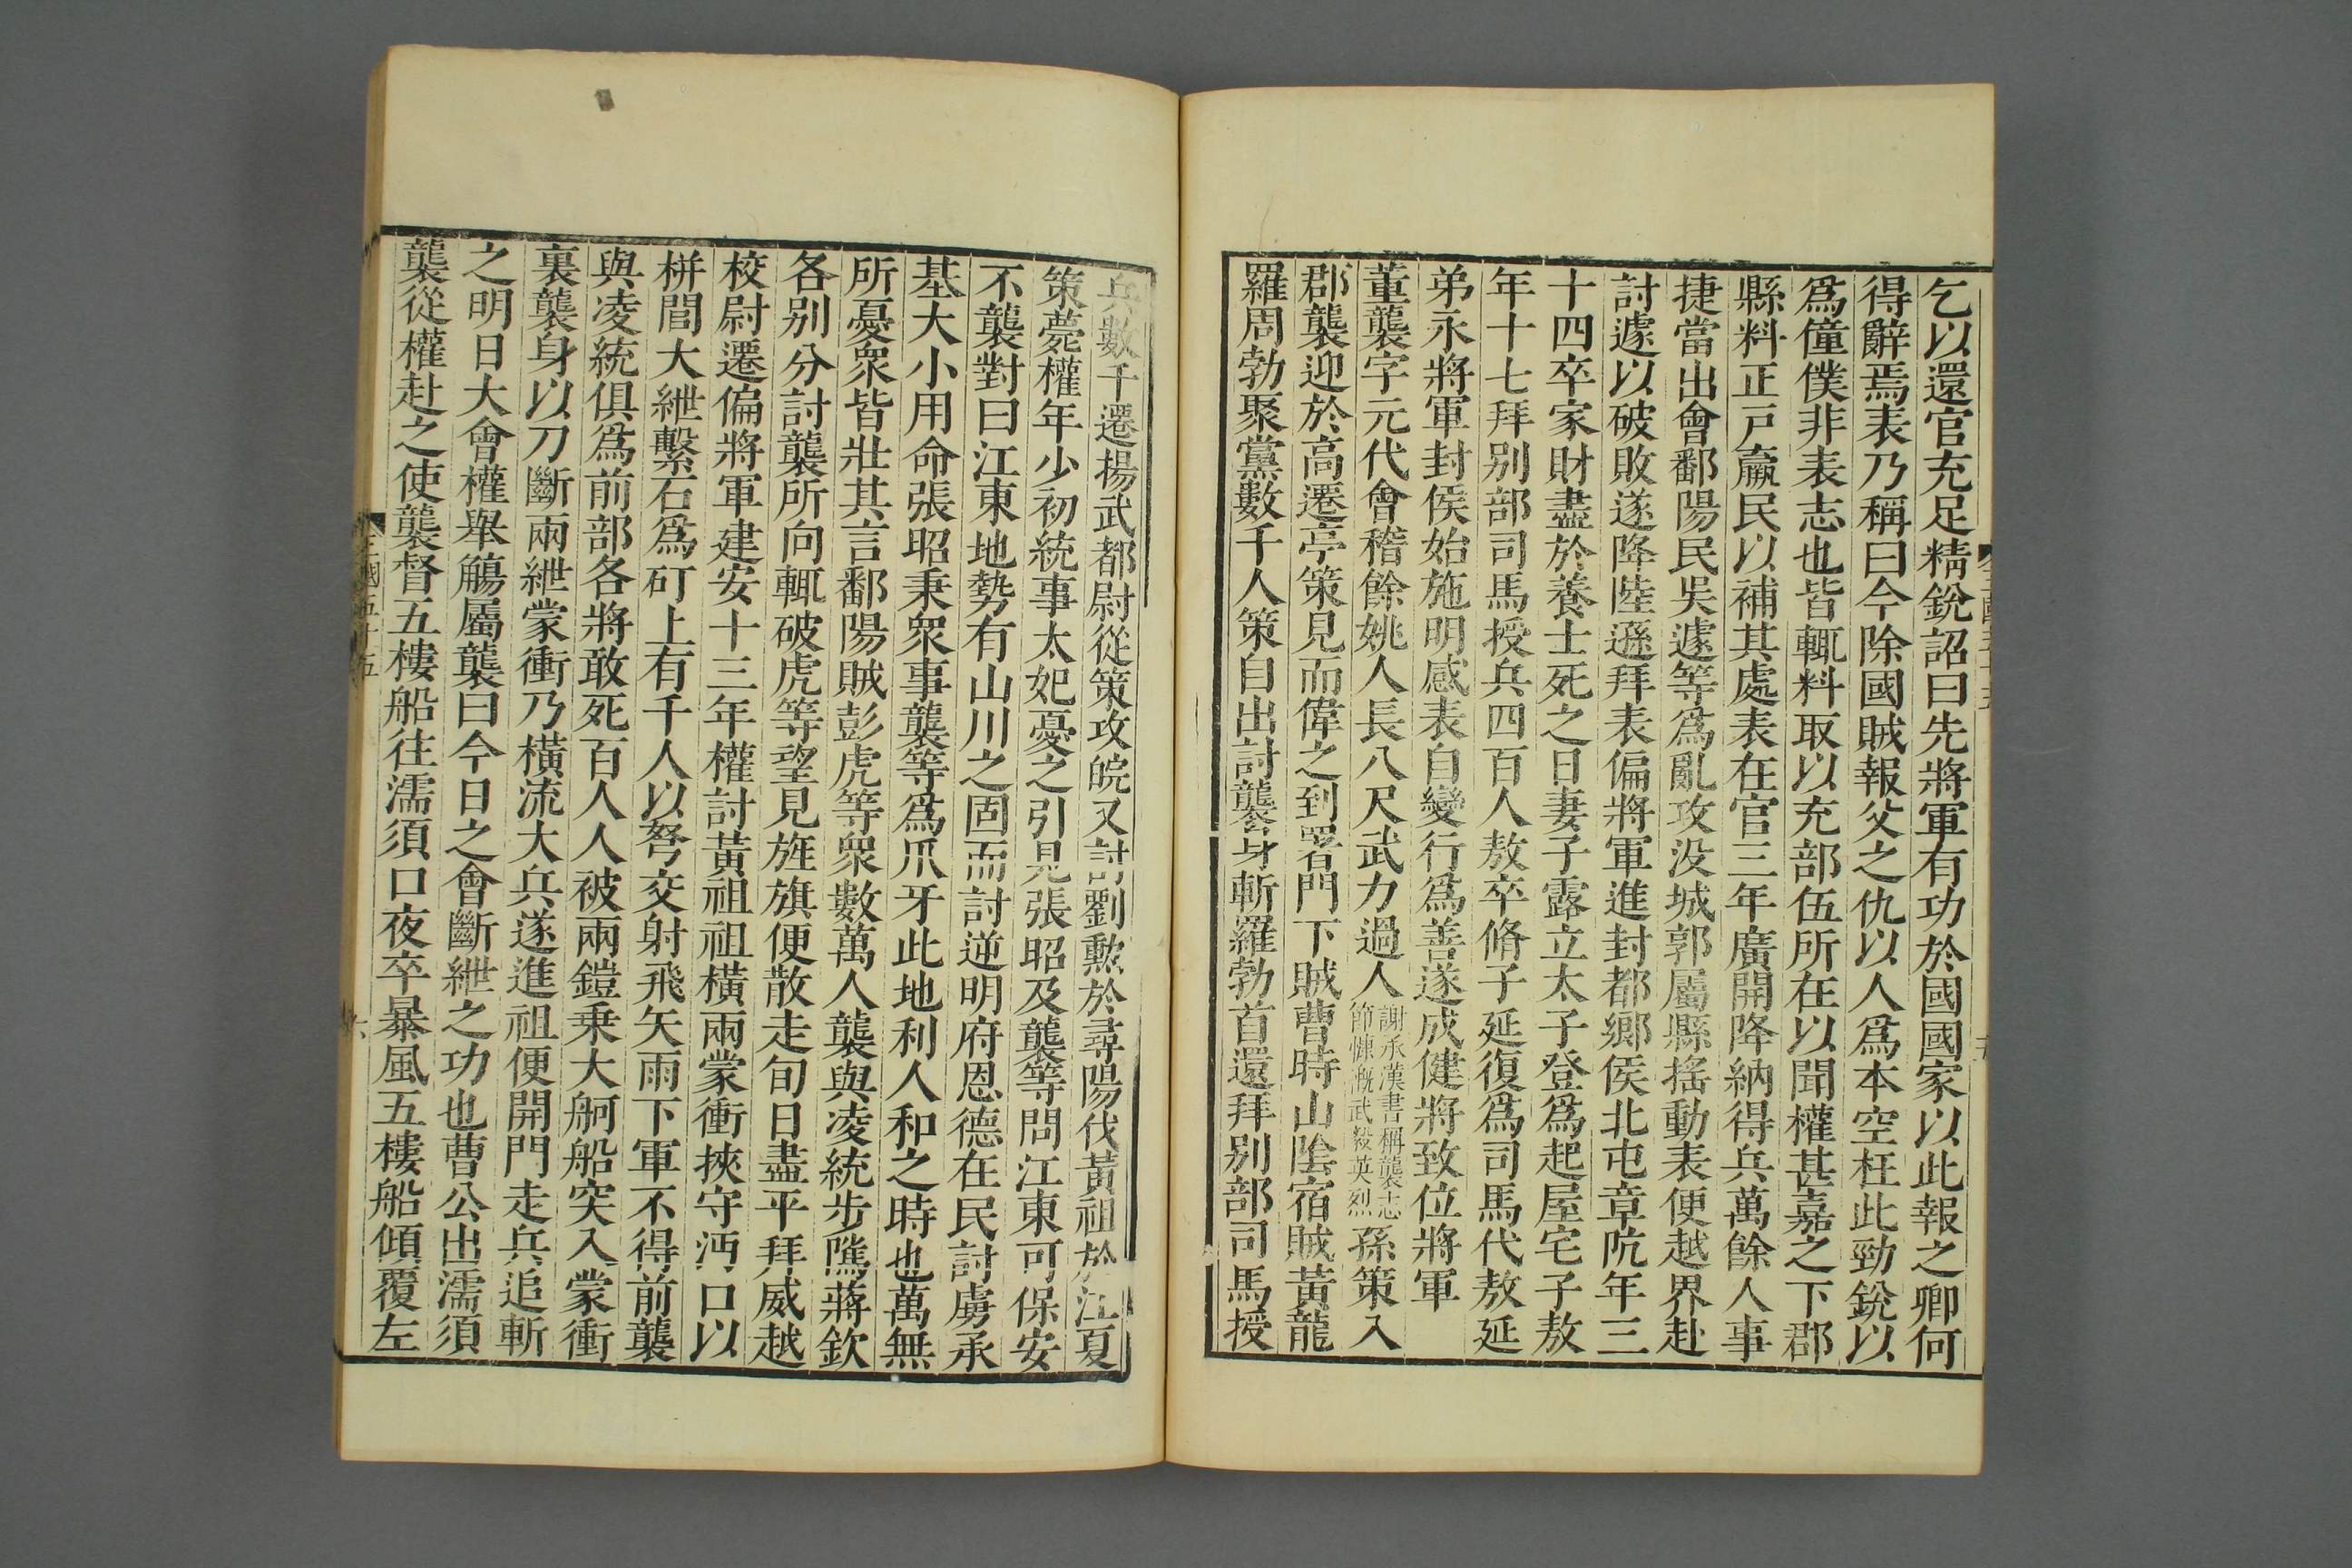 乞以還官充足精銳詔曰先將軍有功於國國家以此報之卿何
得辭焉表乃稱曰今除國賊報父之仇以人爲本空枉此勁銳以
爲僮僕非表志也皆輒料取以充部伍所在以聞權甚嘉之下郡
縣料正戸羸民以補其處表在官三年廣開降納得兵萬餘人事
捷當出會鄱陽民吳遽等爲亂攻没城郭屬縣搖動表便越界赴
討遽以破敗遂降陸遜拜表偏將軍進封都鄉侯北屯章阬年三
十四卒家財盡於養士死之日妻子露立太子登爲起屋宅子敖
年十七拜别部司馬授兵四百人敖卒脩子延復爲司馬代敖延
弟永將軍封侯始施明感表自變行爲善遂成健將致位將軍
董襲字元代會稽餘姚人長八尺武力過人謝承漢書稱襲志節慷慨武毅英烈孫策入
郡襲迎於高遷亭策見而偉之到署門下賊曹時山陰宿賊黃龍
羅周勃聚黨數千人策自出討襲身斬羅勃首還拜别部司馬授
兵數千遷揚武都尉從策攻皖又討劉勲於尋陽伐黃祖於江夏
策薨權年少初統事太妃憂之引見張昭及襲等問江東可保安
不襲對曰江東地勢有山川之固而討逆明府恩德在民討虜承
基大小用命張昭秉衆事襲等爲爪牙此地利人和之時也萬無
所憂衆皆壯其言鄱陽賊彭虎等衆數萬人襲與凌統步隲蔣欽
各别分討襲所向輒破虎等望見旌旗便散走旬日盡平拜威越
校尉遷偏將軍建安十三年權討黃祖祖橫兩蒙衝挾守沔口以
栟閭大紲繫石爲矴上有千人以弩交射飛矢雨下軍不得前襲
與凌統俱爲前部各將敢死百人人被兩鎧乗大舸船突入蒙衝
裏襲身以刀斷兩紲蒙衝乃橫流大兵遂進祖便開門走兵追斬
之明日大會權舉觴屬襲曰今日之會斷紲之功也曹公出濡須
襲從權赴之使襲督五樓船往濡須口夜卒暴風五樓船傾覆左
三國五十五
六